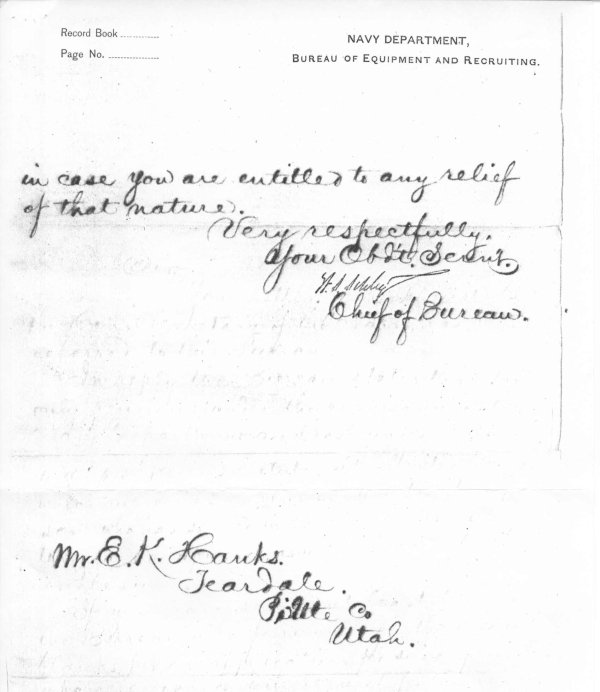 Record Book ............
Page No. ................
NAVY DEPARTMENT,
BUREAU OF EQUIPMENT AND RECRUITING.
in case you are entitled to any relief
of that nature.
Very respectfully.
Your Obdt. Servt.
W. S. Schley
Chief of Bureau.
Mr. E. K. Hanks.
Teardale.
PiUte Co
Utah.